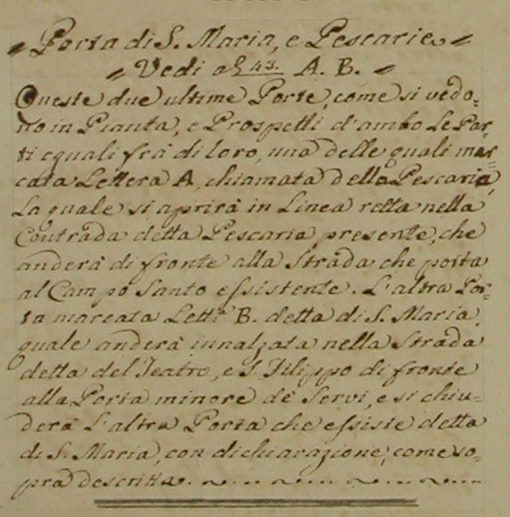 Porta di S. Maria, e Pescarie
Vedi al § 43. A. B.
Queste due ultime Porte, come si vedo=
no in Pianta, e Prospetti d'ambo le Par=
ti eguali frà di loro, una delle quali mar=
cata Lettera A, chiamata della Pescaria,
La quale si aprirà in Linea retta nella
Contrada detta Pescaria presente, che
anderà di fronte alla Strada che porta
al Campo Santo essistente. L'altra Por=
ta marcata Lettª B. detta di S. Maria,
quale anderà innalzata nella Strada
detta del Teatro, e S. Filippo di fronte
alla Porta minore de Servi, e si chiu=
derà L'altra Porta che essiste detta
di S. Maria, con dichiarazione, come so=
pra descritta